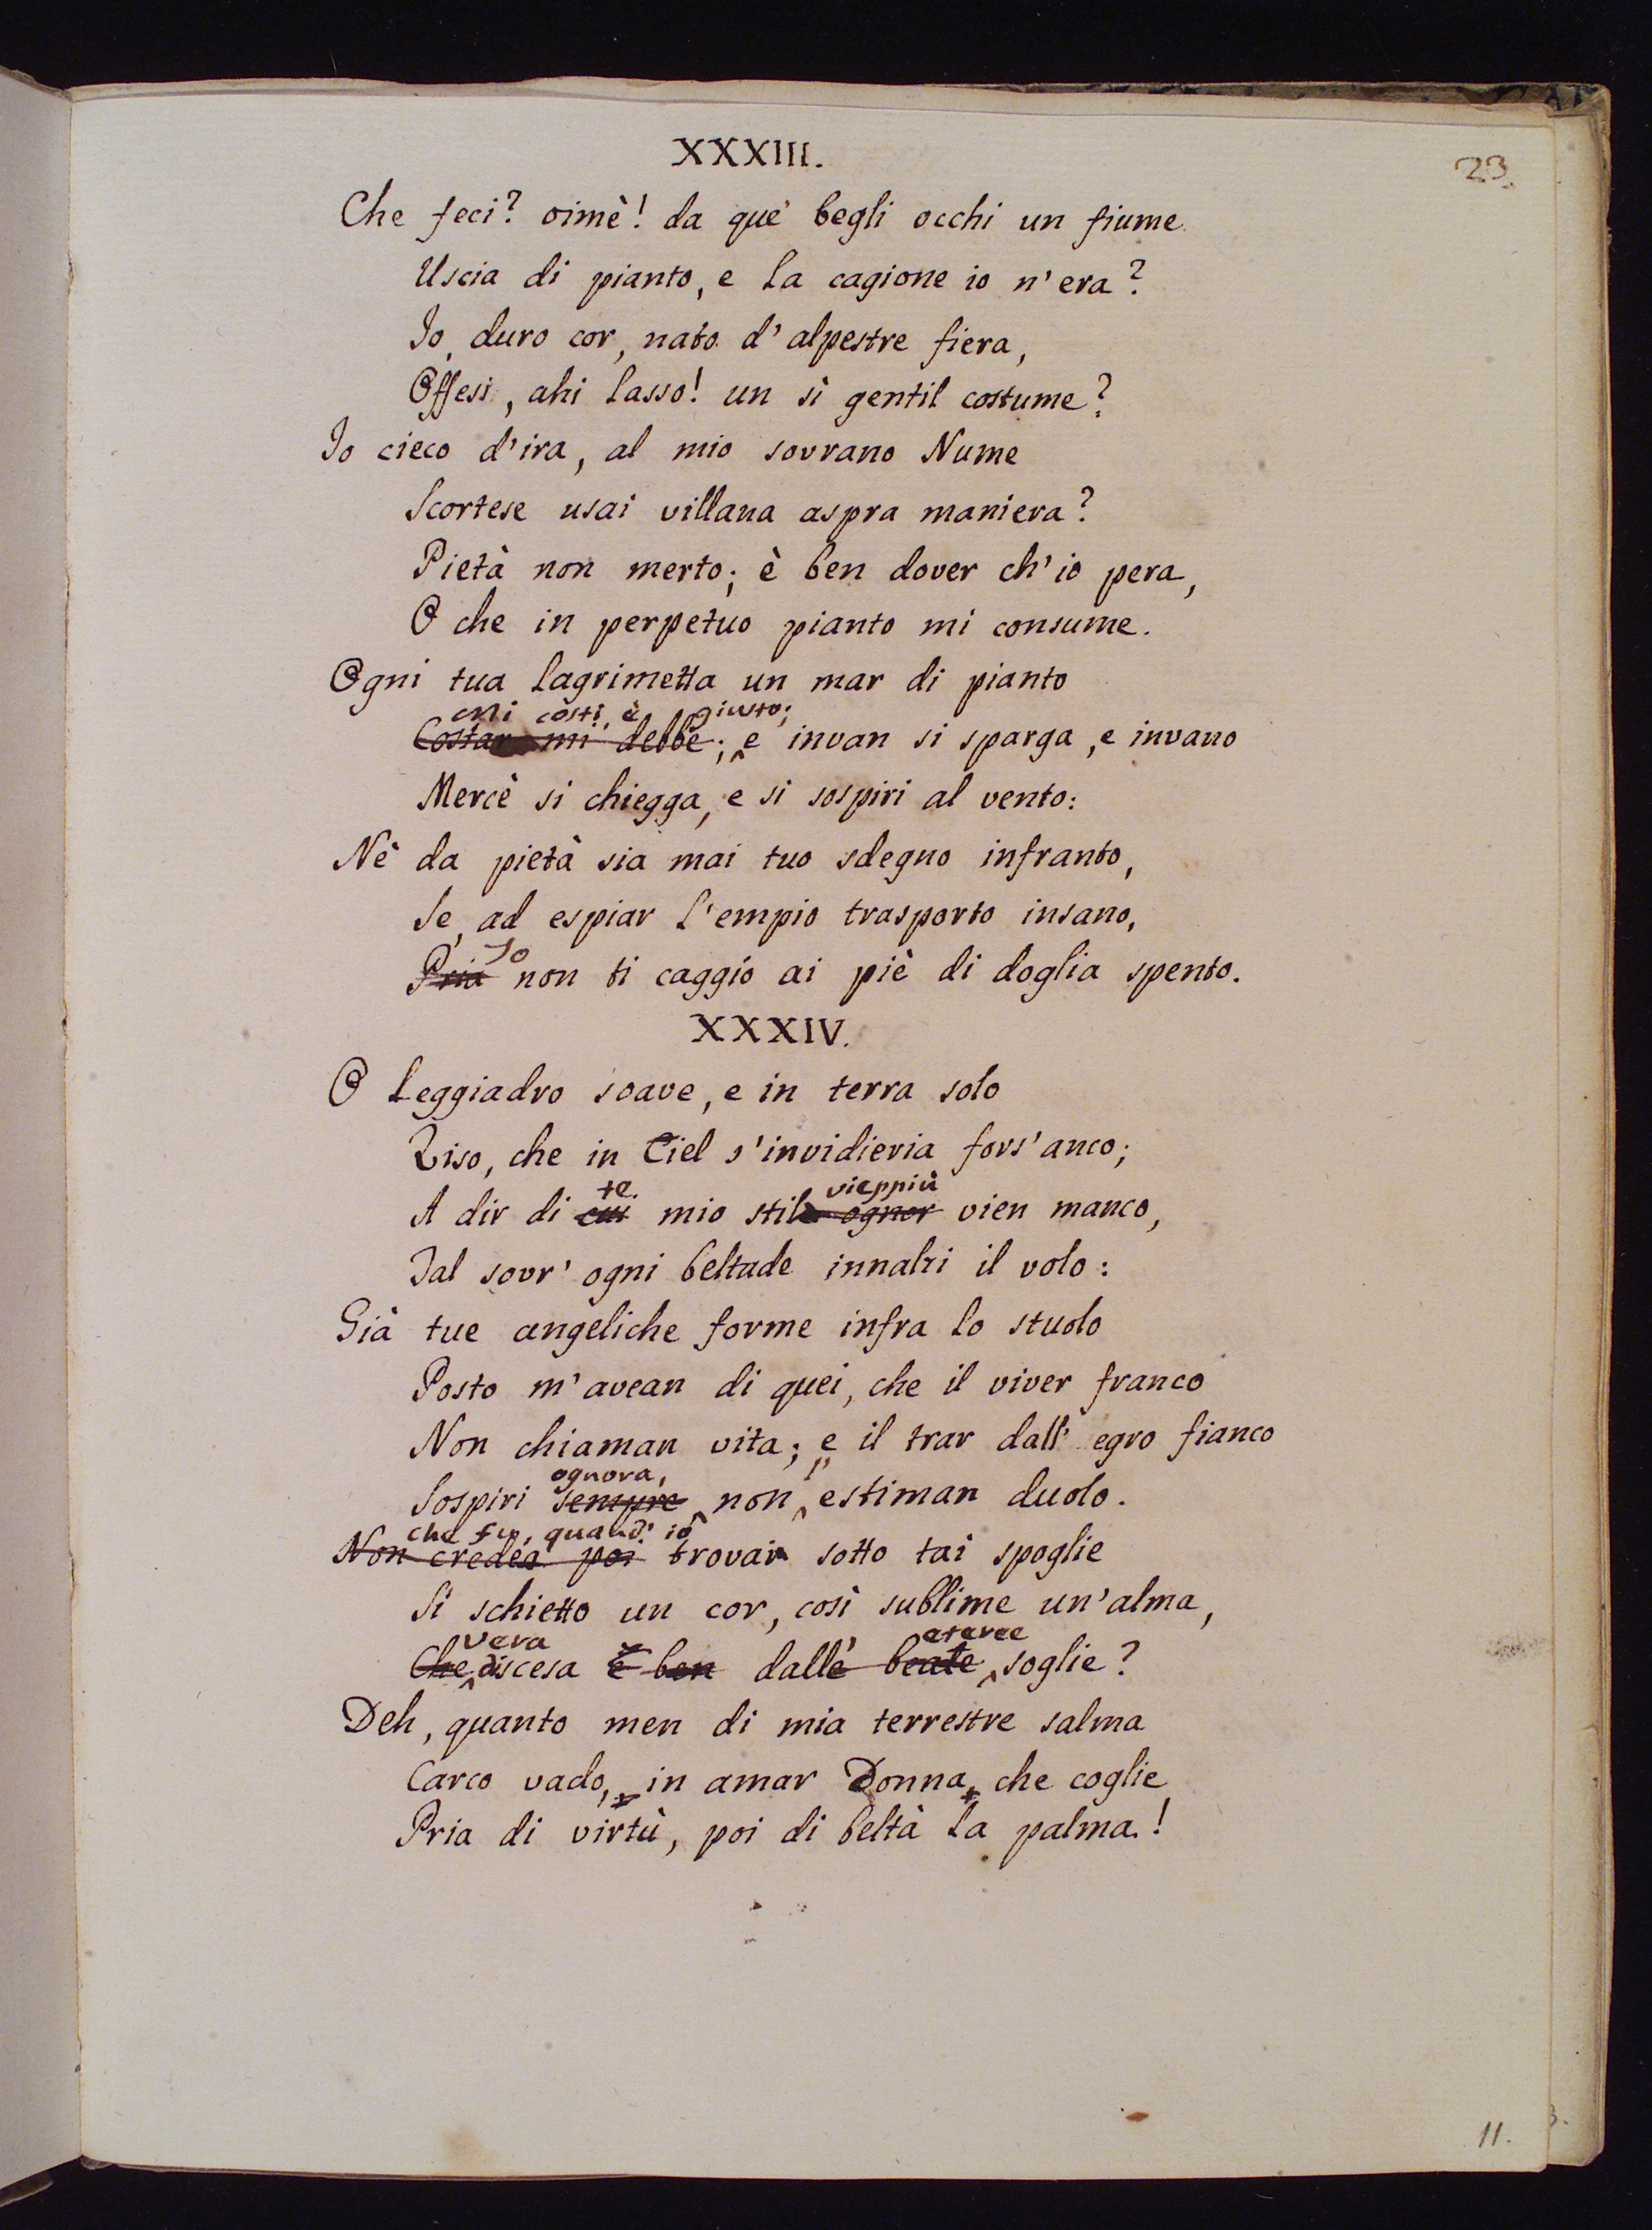 XXXIII.
23.
Che feci? oimè! da que' begli occhi un fiume
Uscia di pianto, e la cagione io n'era?
Io, duro cor, nato d'alpestre fiera,
Offesi, ahi lasso! un sì gentil costume?
Io cieco d'ira, al mio sovrano Nume
Scortese usai villana aspra maniera?
Pietà non merto; è ben dover ch'io pera,
O che in perpetuo pianto mi consume.
Ogni tua lagrimetta un mar di pianto
mi costi, è giusto;
Costar mi debbe; e invan si sparga, e invano
Mercè si chiegga, e si sospiri al vento:
Nè da pietà sia mai tuo sdegno infranto,
Se, ad espiar l'empio trasporto insano,
Io
Pria non ti caggio ai piè di doglia spento.
XXXIV.
O leggiadro soave, e in terra solo
Riso, che in Ciel s'invidieria fors'anco;
te vieppiù
A dir di cui mio stile ognor vien manco,
Tal sovr' ogni beltade innalzi il volo:
Già tue angeliche forme infra lo stuolo
Posto m'avean di quei, che il viver franco
Non chiaman vita; e il trar dall' egro fianco
ognora,
Sospiri sempre non estiman duolo.
che fu, quand' io
Non credea poi trovai sotto tai spoglie
Sì schietto un cor, così sublime un'alma,
vera eteree
Che discesa è ben dalle beate soglie?
Deh, quanto men di mia terrestre salma
Carco vado, in amar Donna, che coglie
Pria di virtù, poi di beltà la palma!
11.